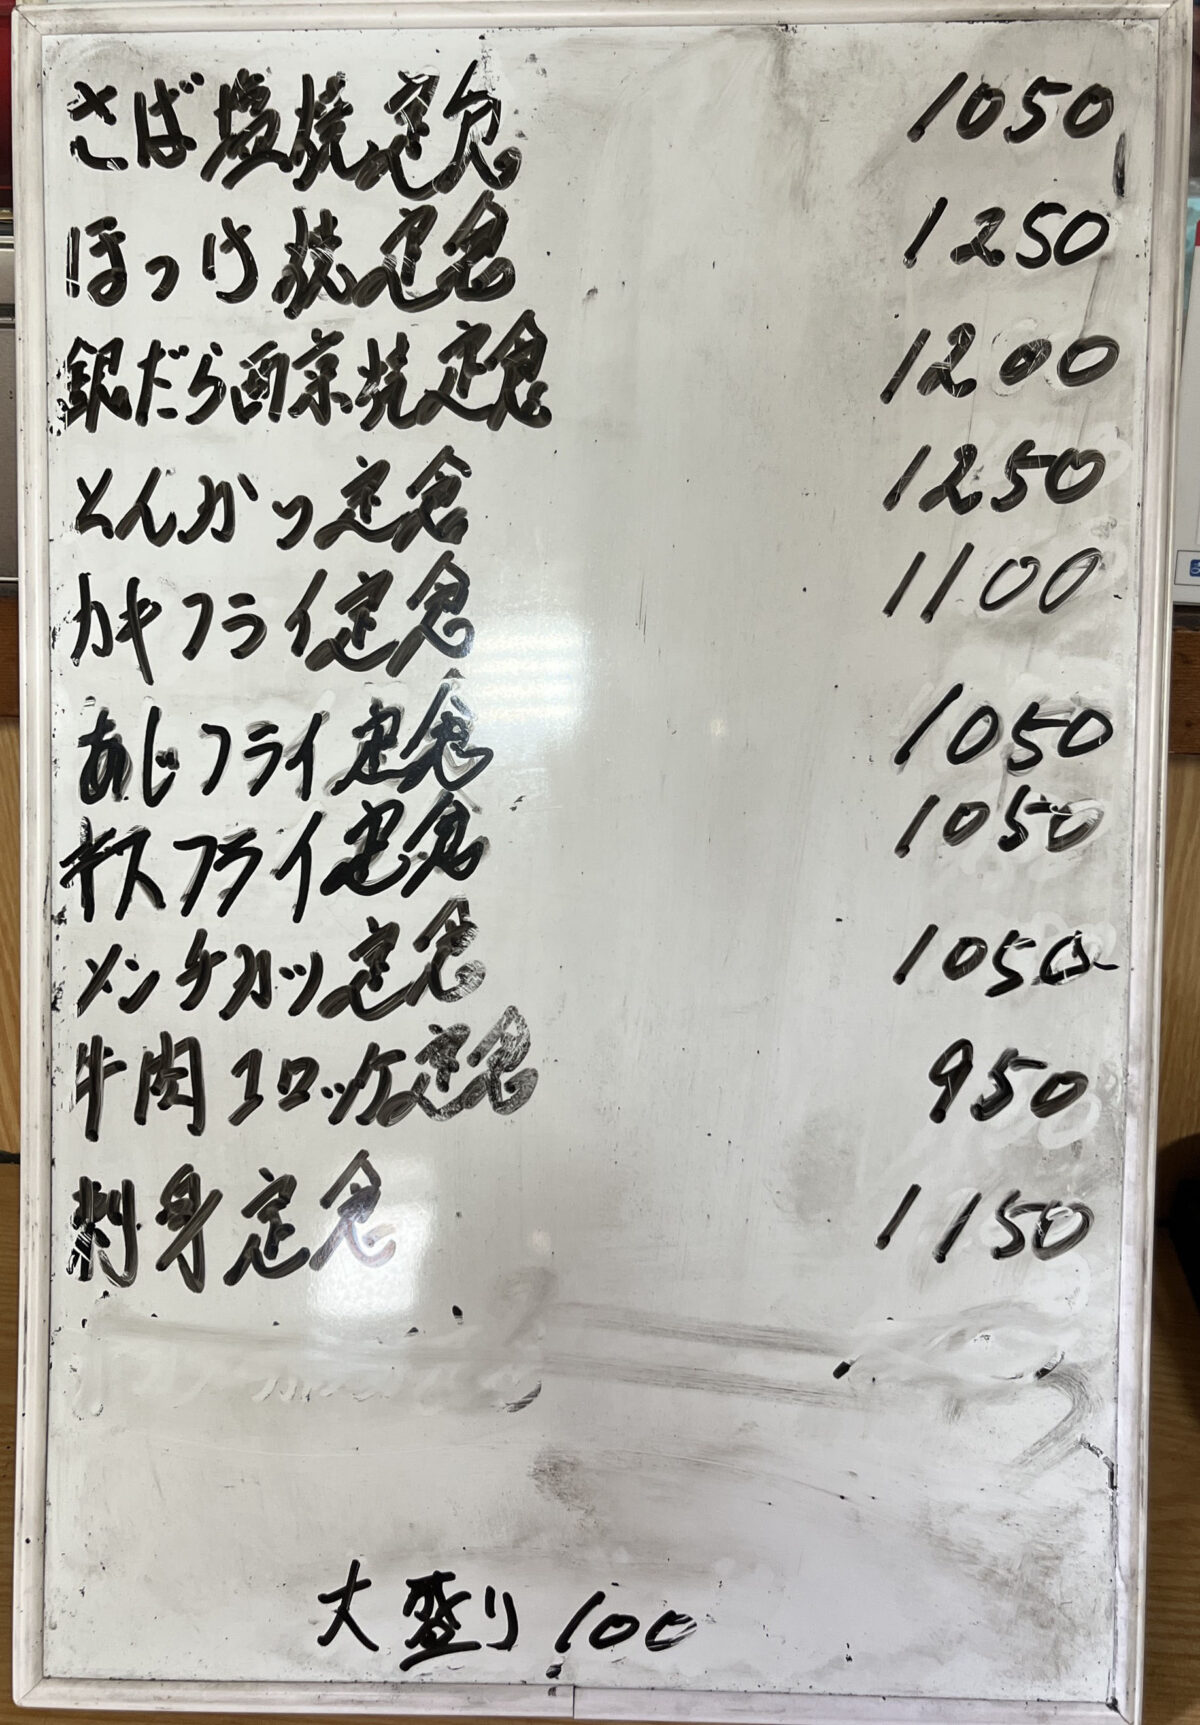 さば塩焼定食 1050
ほっけ焼定食 1250
銀だら西京焼定食 1200
とんかつ定食 1250
カキフライ定食 1100
あじフライ定食 1050
キスフライ定食 1050
メンチカツ定食 1050
牛肉コロッケ定食 950
刺身定食 1150
大盛り 100